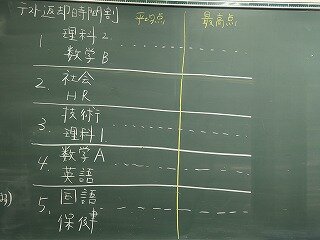 テスト返却時間割 平均点 最高点
1. 理科2
数学B
2. 社会
HR
3. 技術
理科1
4. 数学A
英語
5. 国語
保健